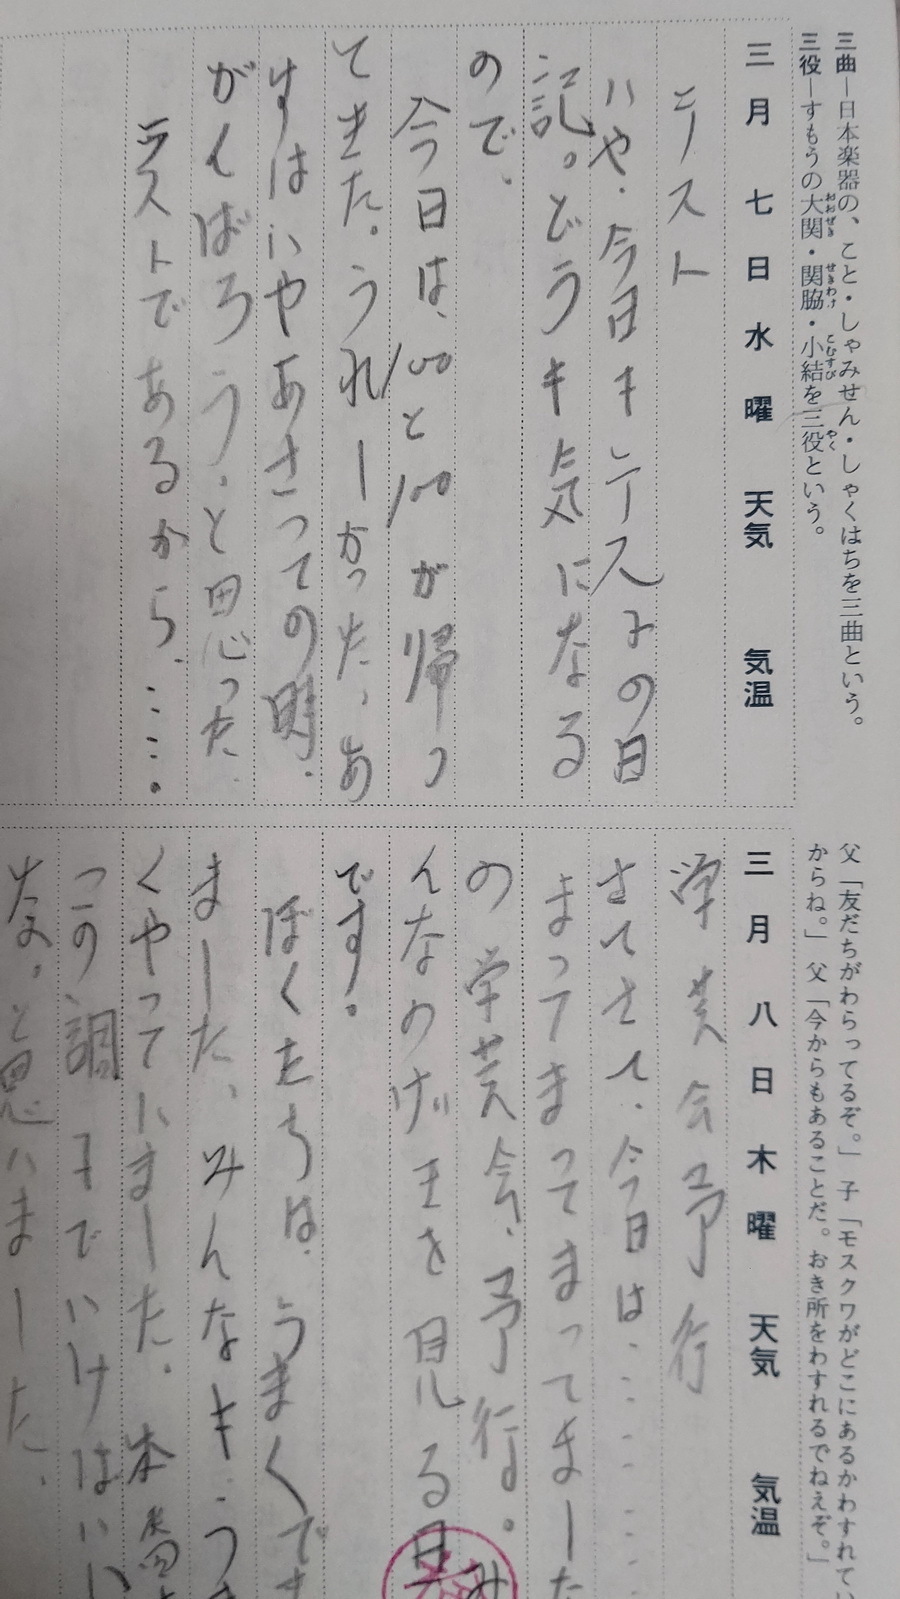 三曲―日本楽器の、こと・しゃみせん・しゃくはちを三曲という。
三役―すもうの大関・関脇・小結を三役という。
三月七日水曜 天気 気温
テスト
いや、今日もテストの日
記。どうも気になる
ので、
今日は、100と100が帰っ
てきた。うれしかった、あ
すはいやあさっての
がんばろう。と思った
テストであるから、……。
父「友だちがわらってるぞ。」子「モスクワがどこにあるかわすれてい
からね。」父「今からもあることだ。おき所をわすれるでねえぞ。」
三月八日木曜 天気 気温
学芸会予行
さてさて、今日は……
まってまってまってました
の学芸会、予行。み
んなのげきを見る日
です。
ぼくたちは、うまくでき
ました、みんなも
くやっていました。本番
この調子でいけばいい
な。と思いました。